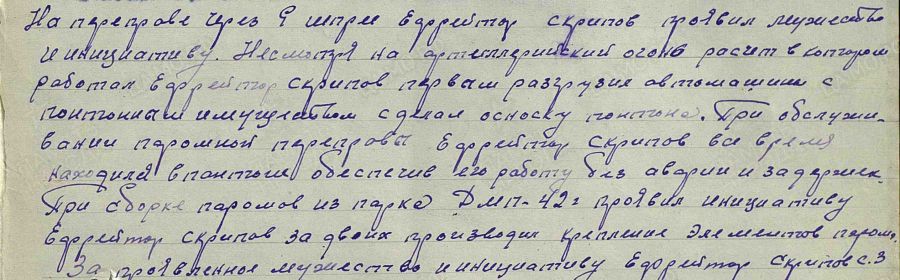 На перепрове через Р Шпрее Ефрейтор Скрипов проявил мужество
и инициативу. Несмотря на артеллерийский огонь расчет в котором
работал Ефрейтор Скрипов первым разгрузил автомашину с
понтонным имуществом сделал оснаску понтона. При обслужи-
вании паромной перепровы Ефрейтор Скрипов все время
находился в понтоне обеспечив его работу без аварии и задержек.
При сборке паромов из парка ДМП-42г проявил инициативу
Ефрейтор Скрипов за двоих производил крепление элементов парома.
За проявленное мужество и инициативу Ефрейтор Скрипов С.З